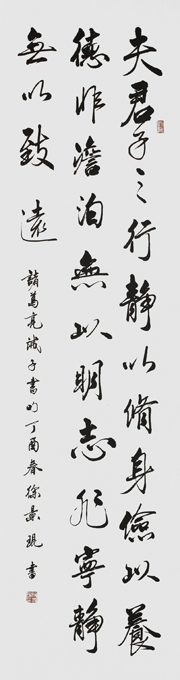 夫君子之行静以脩身儉以養
德非澹泊無以明志非寧静
無以致遠
諸葛亮誡子書句丁酉春徐景琨書